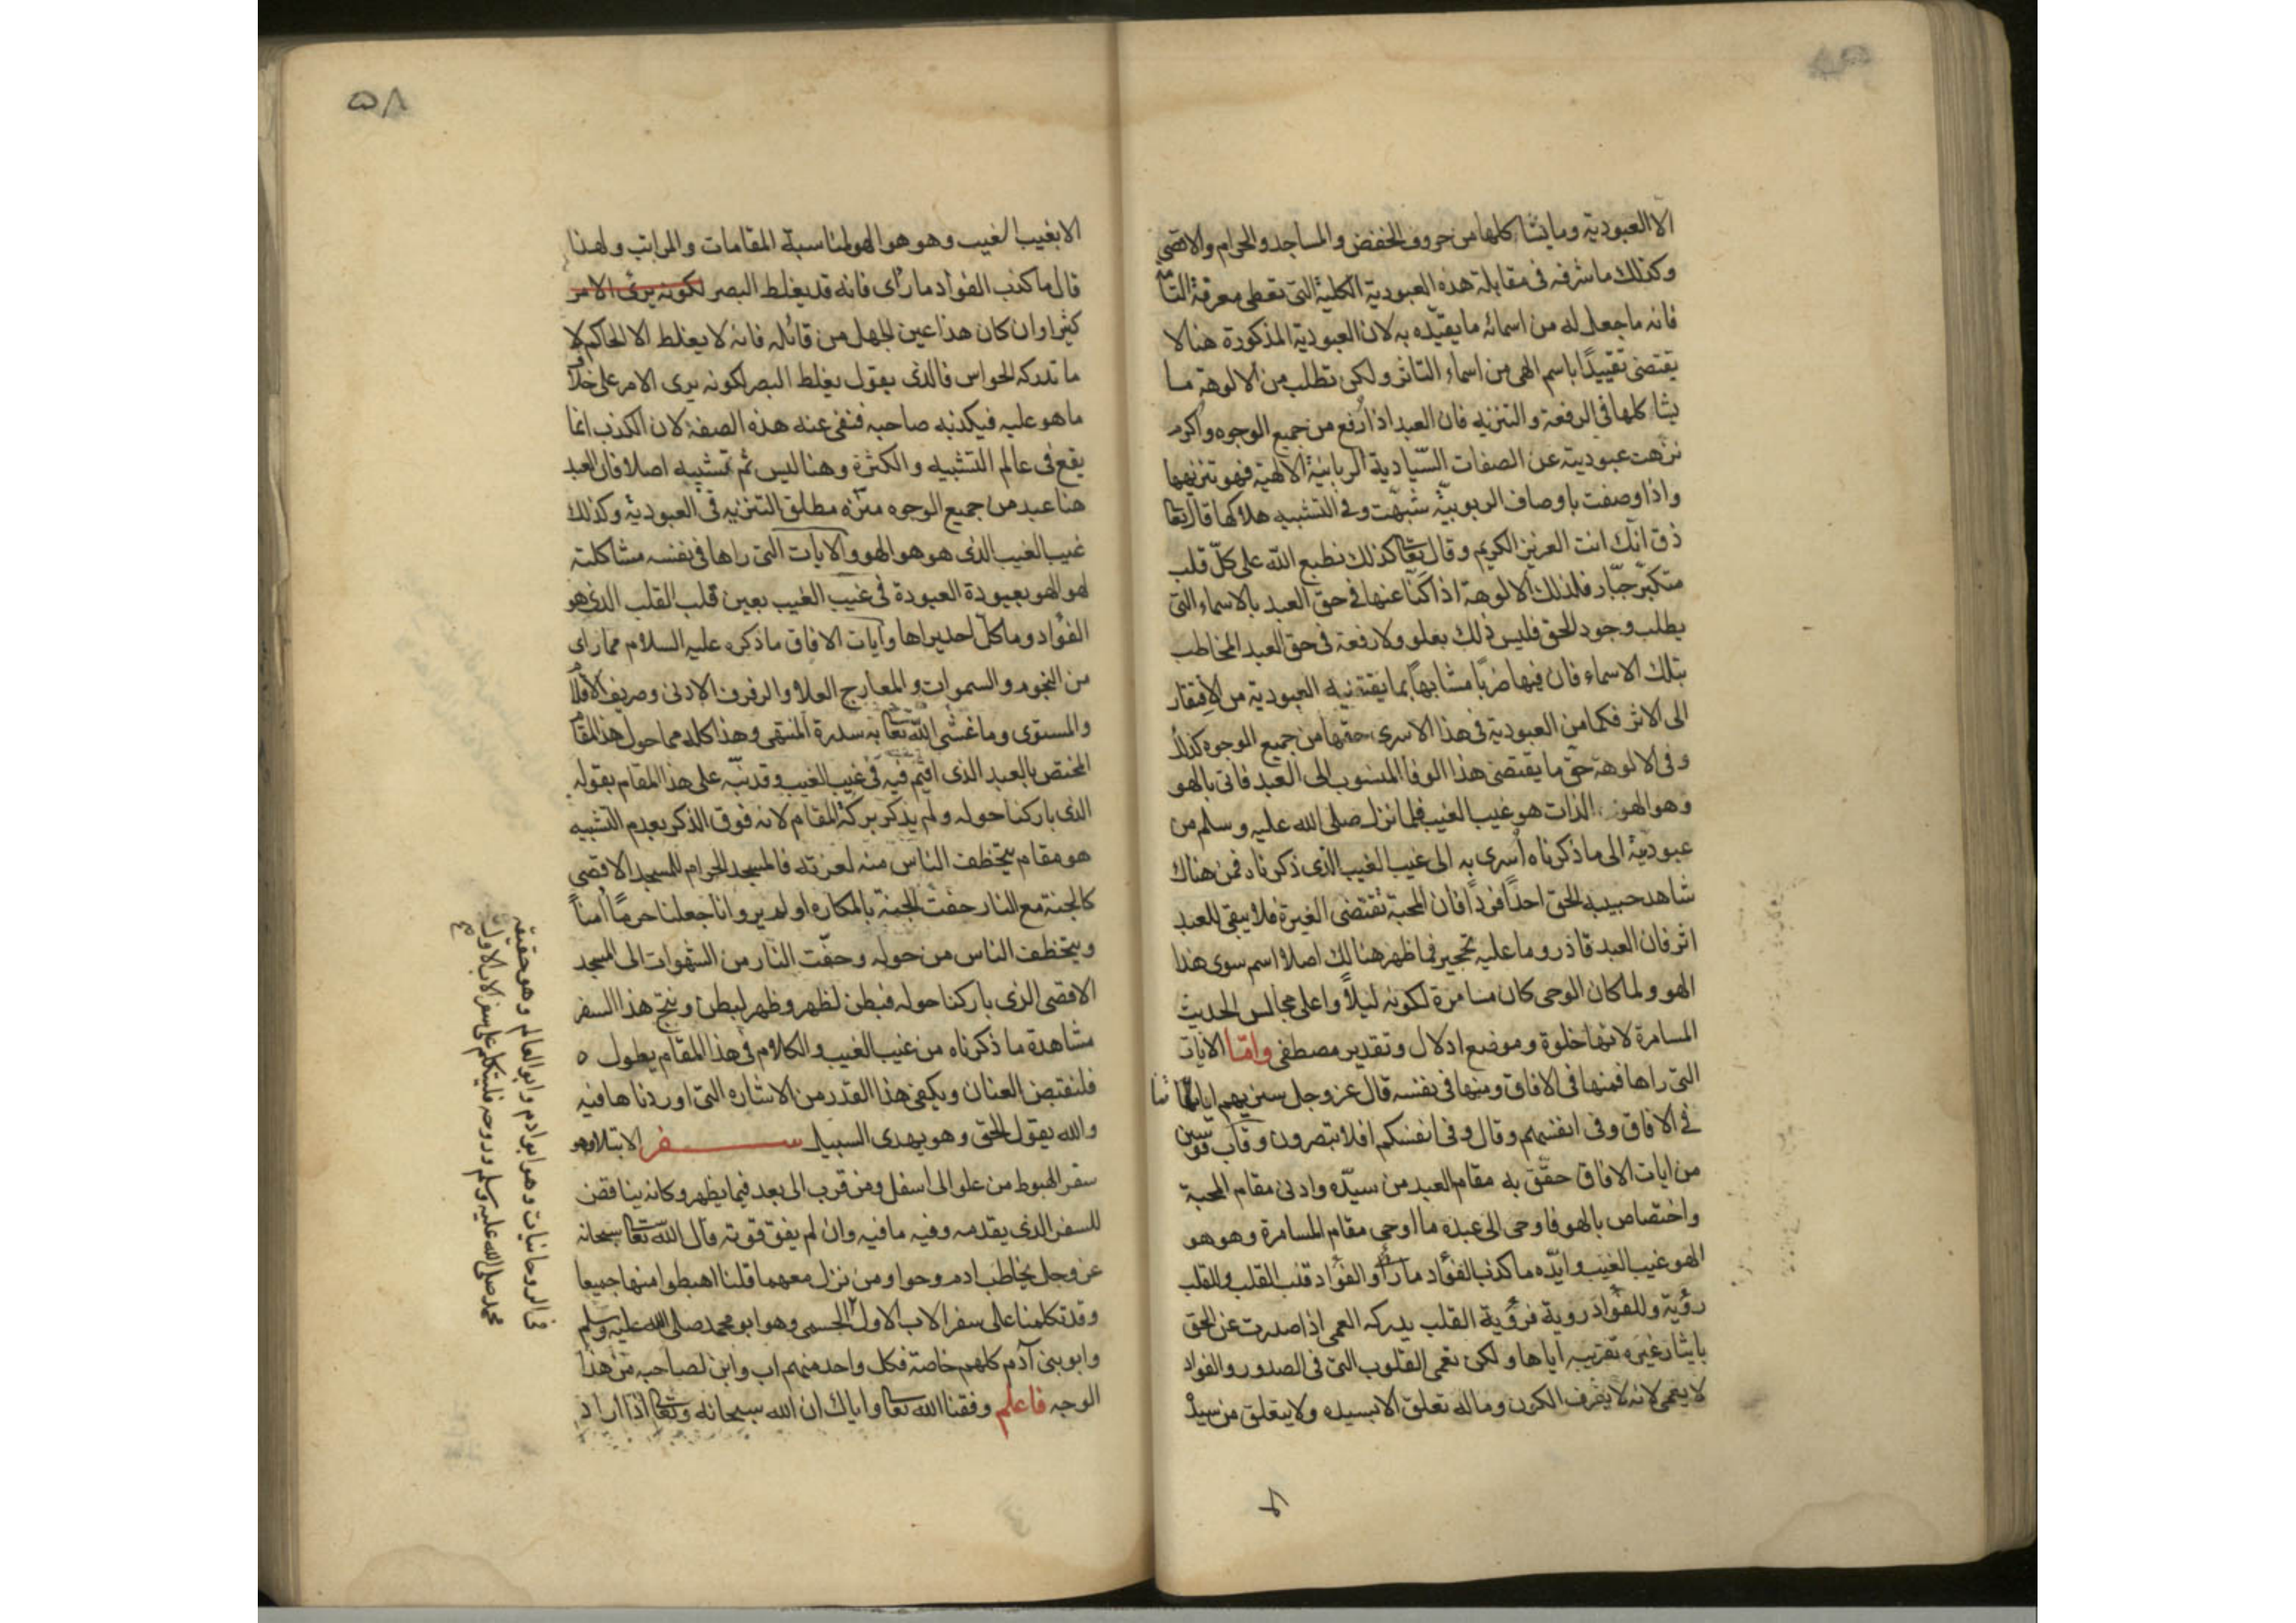 الا العبودية وما يشاكلها من حروف الخفض والمساجد والحرام والاقصى
وكذلك ما شرفه في مقابلة هذه العبودية الكلية التي تعطى معرفة التا
فانه ما جعل له من اسمائه ما يقيده به لان العبودية المذكورة هنا لا
يقتضى تقييدًا باسم الهى من اسماء التاثر ولكن تطلب من الالوهة ما
يشاكلها في الرفعة والتنزيه فان العبد اذا رفع من جميع الوجوه واكرم
نزهت عبوديته عن الصفات السيادية الربانية الالهية فهو تنزيهها
واذا وصفت باوصاف الربوبية شبهت وفي التشبيه هلاكها قال تعا
ذق انك انت العزيز الكريم وقال تعا كذلك نطبع الله على كل قلب
متكبر جبار فلذلك الالوهة اذا كنا عنها في حق العبد بالاسماء التي
يطلب وجود الحق فليس ذلك بعلو ولا رفعة في حق العبد المخاطب
بتلك الاسماء فان فيها ضربًا مشابهاً بما يقتضيه العبودية من الافتقار
الى الاثر فكما من العبودية في هذا الاسرى حقها من جميع الوجوه كذلك
وفى الالوهة حق ما يقتضى هذا الوفا المنسوب الى العبد فاتى بالهو
وهو الهو الذات هو غيب الغيب فلما نزل صلى الله عليه وسلم من
عبوديته الى ما ذكرناه اسرى به الى غيب الغيب الذي ذكرناه فمن هناك
شاهد حبيبه الحق احدًا فردًا فان المحبة تقتضى الغيرة فلا يبقى للعبد
اثر فان العبد قاذر وما عليه تحجير فما ظهر هنالك اصلا اسم سوى هذا
الهو ولما كان الوحى كان مسامرة لكونه ليلاً واعلى مجالس الحديث
المسامرة لانها خلوة وموضع ادلال وتقدير مصطفى واما الايات
التي راها فمنها في الافاق ومنها في نفسه قال عز وجل سنريهم اياتنا
في الافاق وفى انفسهم وقال وفى انفسكم افلا تبصرون وقاب قوسين
من ايات الافاق حقق به مقام العبد من سيده وادنى مقام المحبة
واختصاص بالهو فاوحى الى عبده ما اوحى مقام المسامرة وهو هو
الهو غيب الغيب وايده ما كذب الفؤاد ما رأى والفؤاد قلب القلب وللقلب
رؤية وللفؤاد روية فرؤية القلب يدركه العمى اذا صدرت عن الحق
بايثار غيره تقريبه اياها ولكن تعمى القلوب التي في الصدور والفواد
لا يعمى لانه لا يعرف الكون وما له تعلق الا بسيده ولا يتعلق من سيده
٥٨
الا بغيب الغيب وهو هو الهو لمناسبة المقامات والمراتب ولهذا
قال ما كذب الفؤاد ما رأى فانه قد يغلط البصر لكونه يرى الامر
كثيرا وان كان هذا عين الجهل من قائله فانه لا يغلط الا الحاكم لا
ما تدركه الحواس فالذي يقول يغلط البصر لكونه يرى الامر على خلاف
ما هو عليه فيكذبه صاحبه فنفى عنه هذه الصفة لان الكذب انما
يقع في عالم التشبيه والكثرة وهنا ليس ثم تشبيه اصلا فان العبد
هنا عبد من جميع الوجوه منزه مطلق التنزيه في العبودية وكذلك
غيب الغيب الذي هو هو الهو والايات التي راها في نفسه مشاكلته
لهو الهو بعبودة العبودة في غيب الغيب بعين قلب القلب الذي هو
الفؤاد وما كل احد يراها وآيات الافاق ما ذكره عليه السلام مما راى
من النجوم والسموات والمعارج العلا والرفرف الادنى وصريف الاقلام
والمستوى وما غشى الله تعا به سدرة المنتهى وهذا كله مما حول هذا المقام
المختص بالعبد الذي اقيم فيه في غيب الغيب وقد نبه على هذا المقام بقوله
الذي باركنا حوله ولم يذكر بركة المقام لانه فوق الذكر بعدم التشبيه
هو مقام يتخطف الناس منه لعزته فالمسجد الحرام للمسجد الاقصى
كالجنة مع النار حفت الجنة بالمكاره اولم يروا انا جعلنا حرمًا آمناً
ويتخطف الناس من حوله وحفت النار من الشهوات الى المسجد
الاقصى الذي باركنا حوله فبطن لظهر وظهر لبطن ونتج هذا السفر
مشاهدة ما ذكرناه من غيب الغيب والكلام في هذا المقام يطول ٥
فلنقتبض العنان ويكفى هذا القدر من الاشاره التي اوردناها فيه
والله يقول الحق وهو يهدى السبيل سفر الابتلا وهو
سفر الهبوط من علو الى اسفل ومن قرب الى بعد فيما يظهر وكانه يناقض
للسفر الذي يقدمه وفيه ما فيه وان لم يفق قوته قال الله تعا سبحانه
عز وجل يخاطب ادم وحوا ومن نزل معهما قلنا اهبطوا منها جميعا
وقد تكلمنا على سفر الاب الاول الجسمى وهو ابو محمد صلى الله عليه وسلم
وابو بنى آدم كلهم خاصة فكل واحد منهم اب وابن لصاحبه من هذا
الوجه فاعلم وفقنا الله تعا واياك ان الله سبحانه وتعا اذا اراد
من الروحانيات وهو ابو ادم وابو العالم وهو حقيقة
محمد صلى الله عليه وسلم وروحه فلنتكلم على سفر الاب الاول